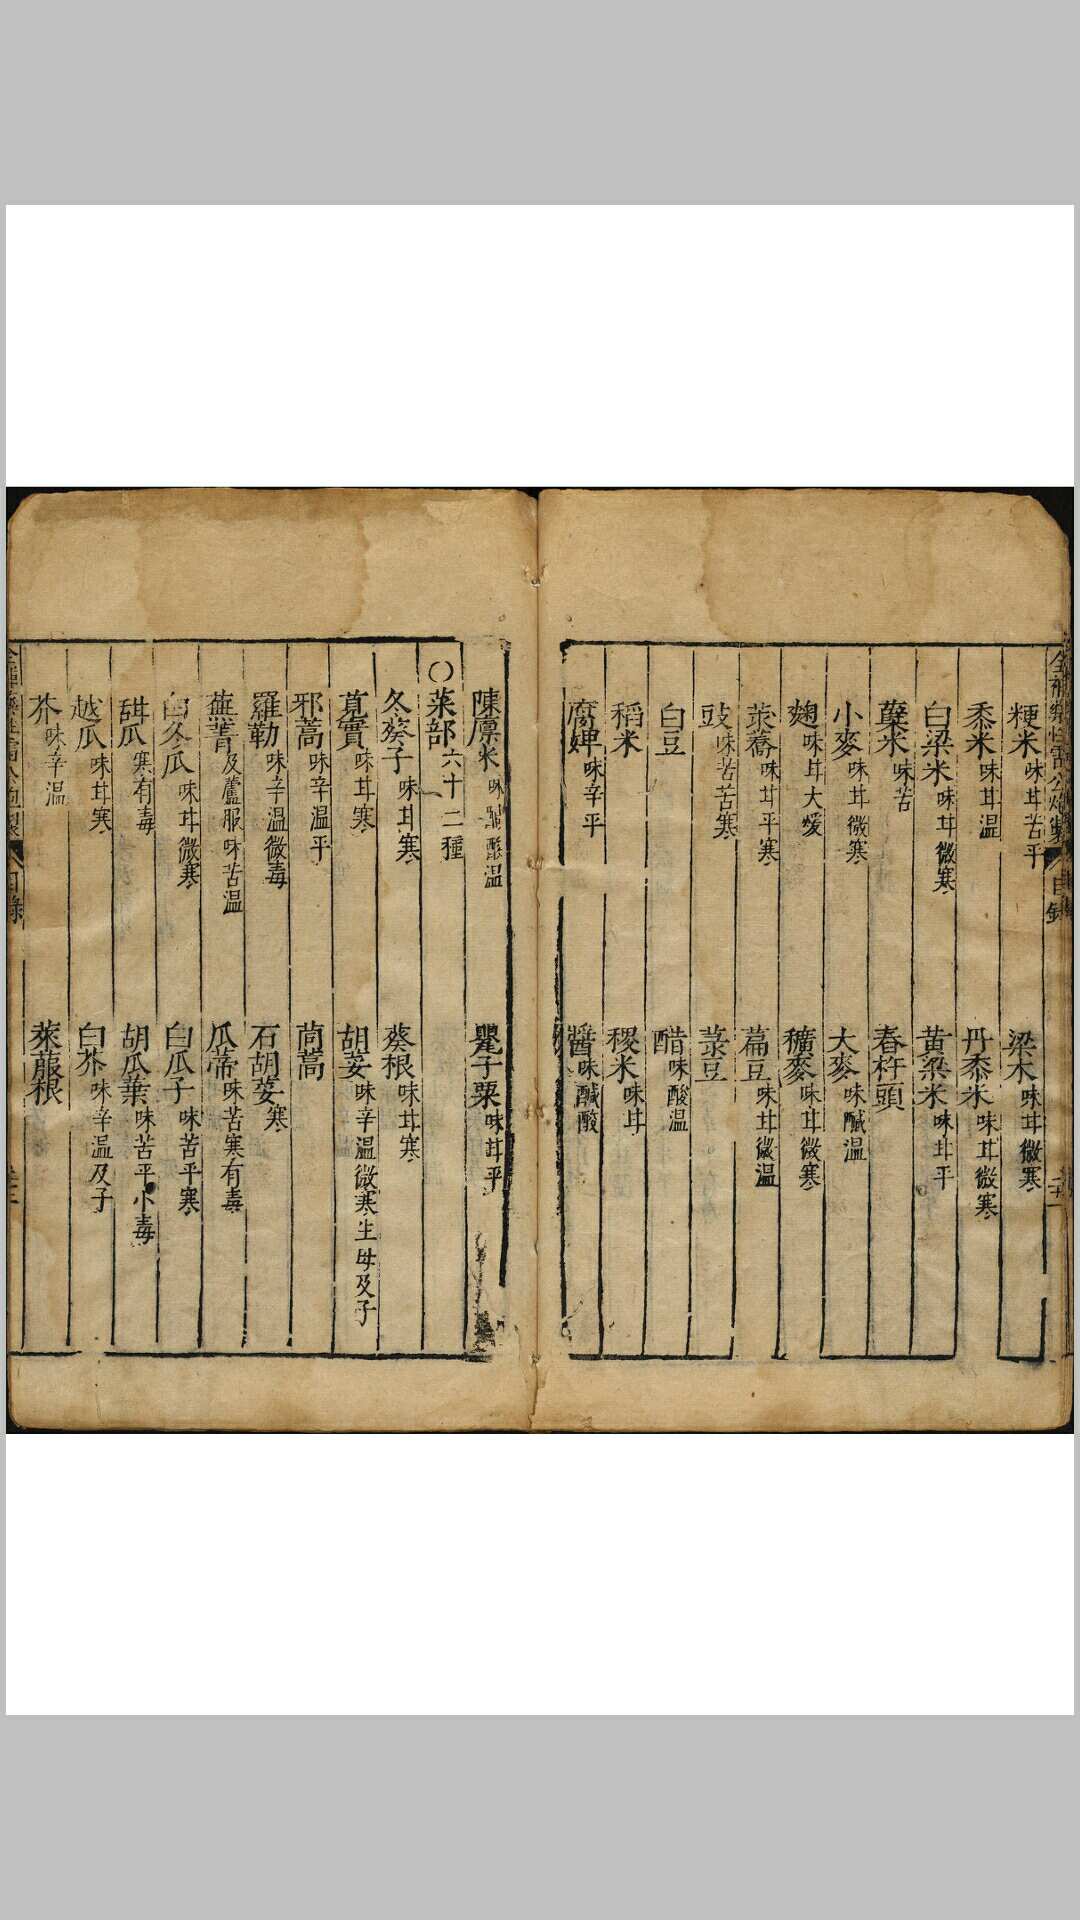 粳米味甘苦平　梁米味甘微寒
黍米味甘温　丹黍米味甘微寒
白梁米味甘微寒　黄梁米味甘平
蘖米味苦　春杵頭
小麥味甘微寒　大麥味醎温
麯味甘大煖　穬麥味甘微寒
蕎味甘平寒　藊豆味甘微温
豉味苦苦寒　菉豆
白豆　醋味酸温
稻米　稷米味甘
腐婢味辛平　醬味鹹酸
陳廩米味鹹酸温　罌子粟味甘平
○菜部六十二種
冬葵子味甘寒　葵根味甘寒
莧實味甘寒　胡荽味辛温微寒生毋及子
邪蒿味辛温平　茼蒿
羅勒味辛温微毒　石胡荽寒
蕪菁及蘆服味苦温　瓜蒂味苦寒有毒
白冬瓜味甘微寒　白瓜子味苦平寒
甜瓜寒有毒　胡瓜葉味苦平小毒
越瓜味甘寒　白芥味辛温及子
芥味辛温　萊菔根